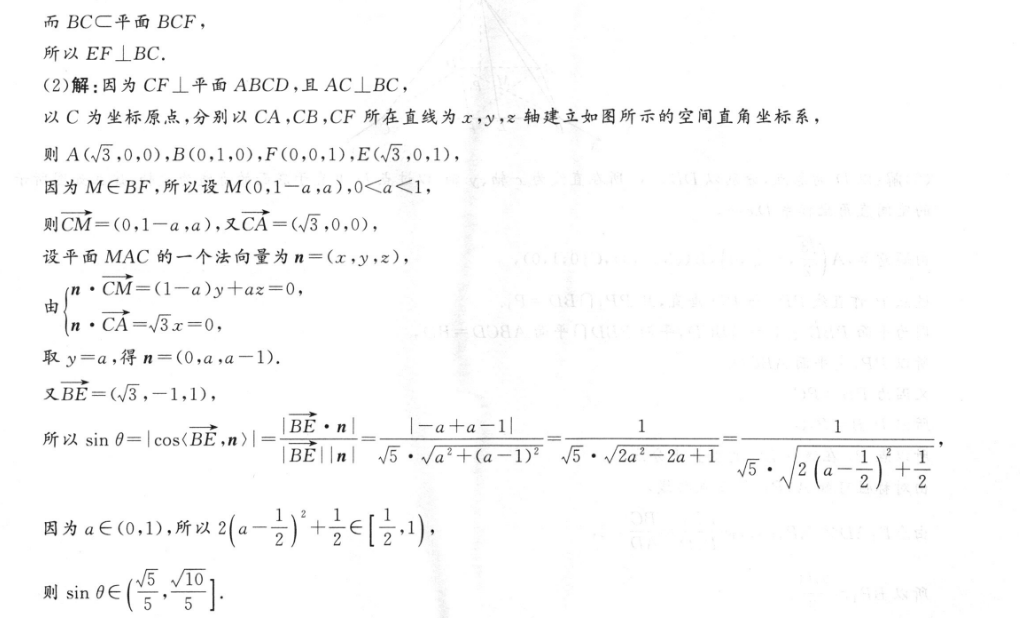 而 BC⊂平面 BCF，
所以 EF⊥BC.
(2)解：因为 CF⊥平面 ABCD，且 AC⊥BC，
以 C 为坐标原点，分别以 CA，CB，CF 所在直线为 x，y，z 轴建立如图所示的空间直角坐标系，
则 A(√3,0,0)，B(0,1,0)，F(0,0,1)，E(√3,0,1)，
因为 M∈BF，所以设 M(0,1−a,a)，0<a<1，
则$\overrightarrow{CM}$=(0,1−a,a)，又$\overrightarrow{CA}$=(√3,0,0)，
设平面 MAC 的一个法向量为 n=(x,y,z)，
由$\begin{cases} n·\overrightarrow{CM}=(1-a)y+az=0, \\ n·\overrightarrow{CA}=\sqrt{3}x=0, \end{cases}$
取 y=a，得 n=(0,a,a−1).
又$\overrightarrow{BE}$=(√3,−1,1)，
所以 $\sin θ=|\cos〈\overrightarrow{BE},n〉|=\frac{|\overrightarrow{BE}·n|}{|\overrightarrow{BE}||n|}=\frac{|-a+a-1|}{\sqrt{5}·\sqrt{a^2+(a-1)^2}}=\frac{1}{\sqrt{5}·\sqrt{2a^2-2a+1}}=\frac{1}{\sqrt{5}·\sqrt{2\left(a-\frac{1}{2}\right)^2+\frac{1}{2}}}$，
因为 a∈(0,1)，所以 $2\left(a-\frac{1}{2}\right)^2+\frac{1}{2}∈\left[\frac{1}{2},1\right)$，
则 $\sin θ∈\left(\frac{\sqrt{5}}{5},\frac{\sqrt{10}}{5}\right]$.